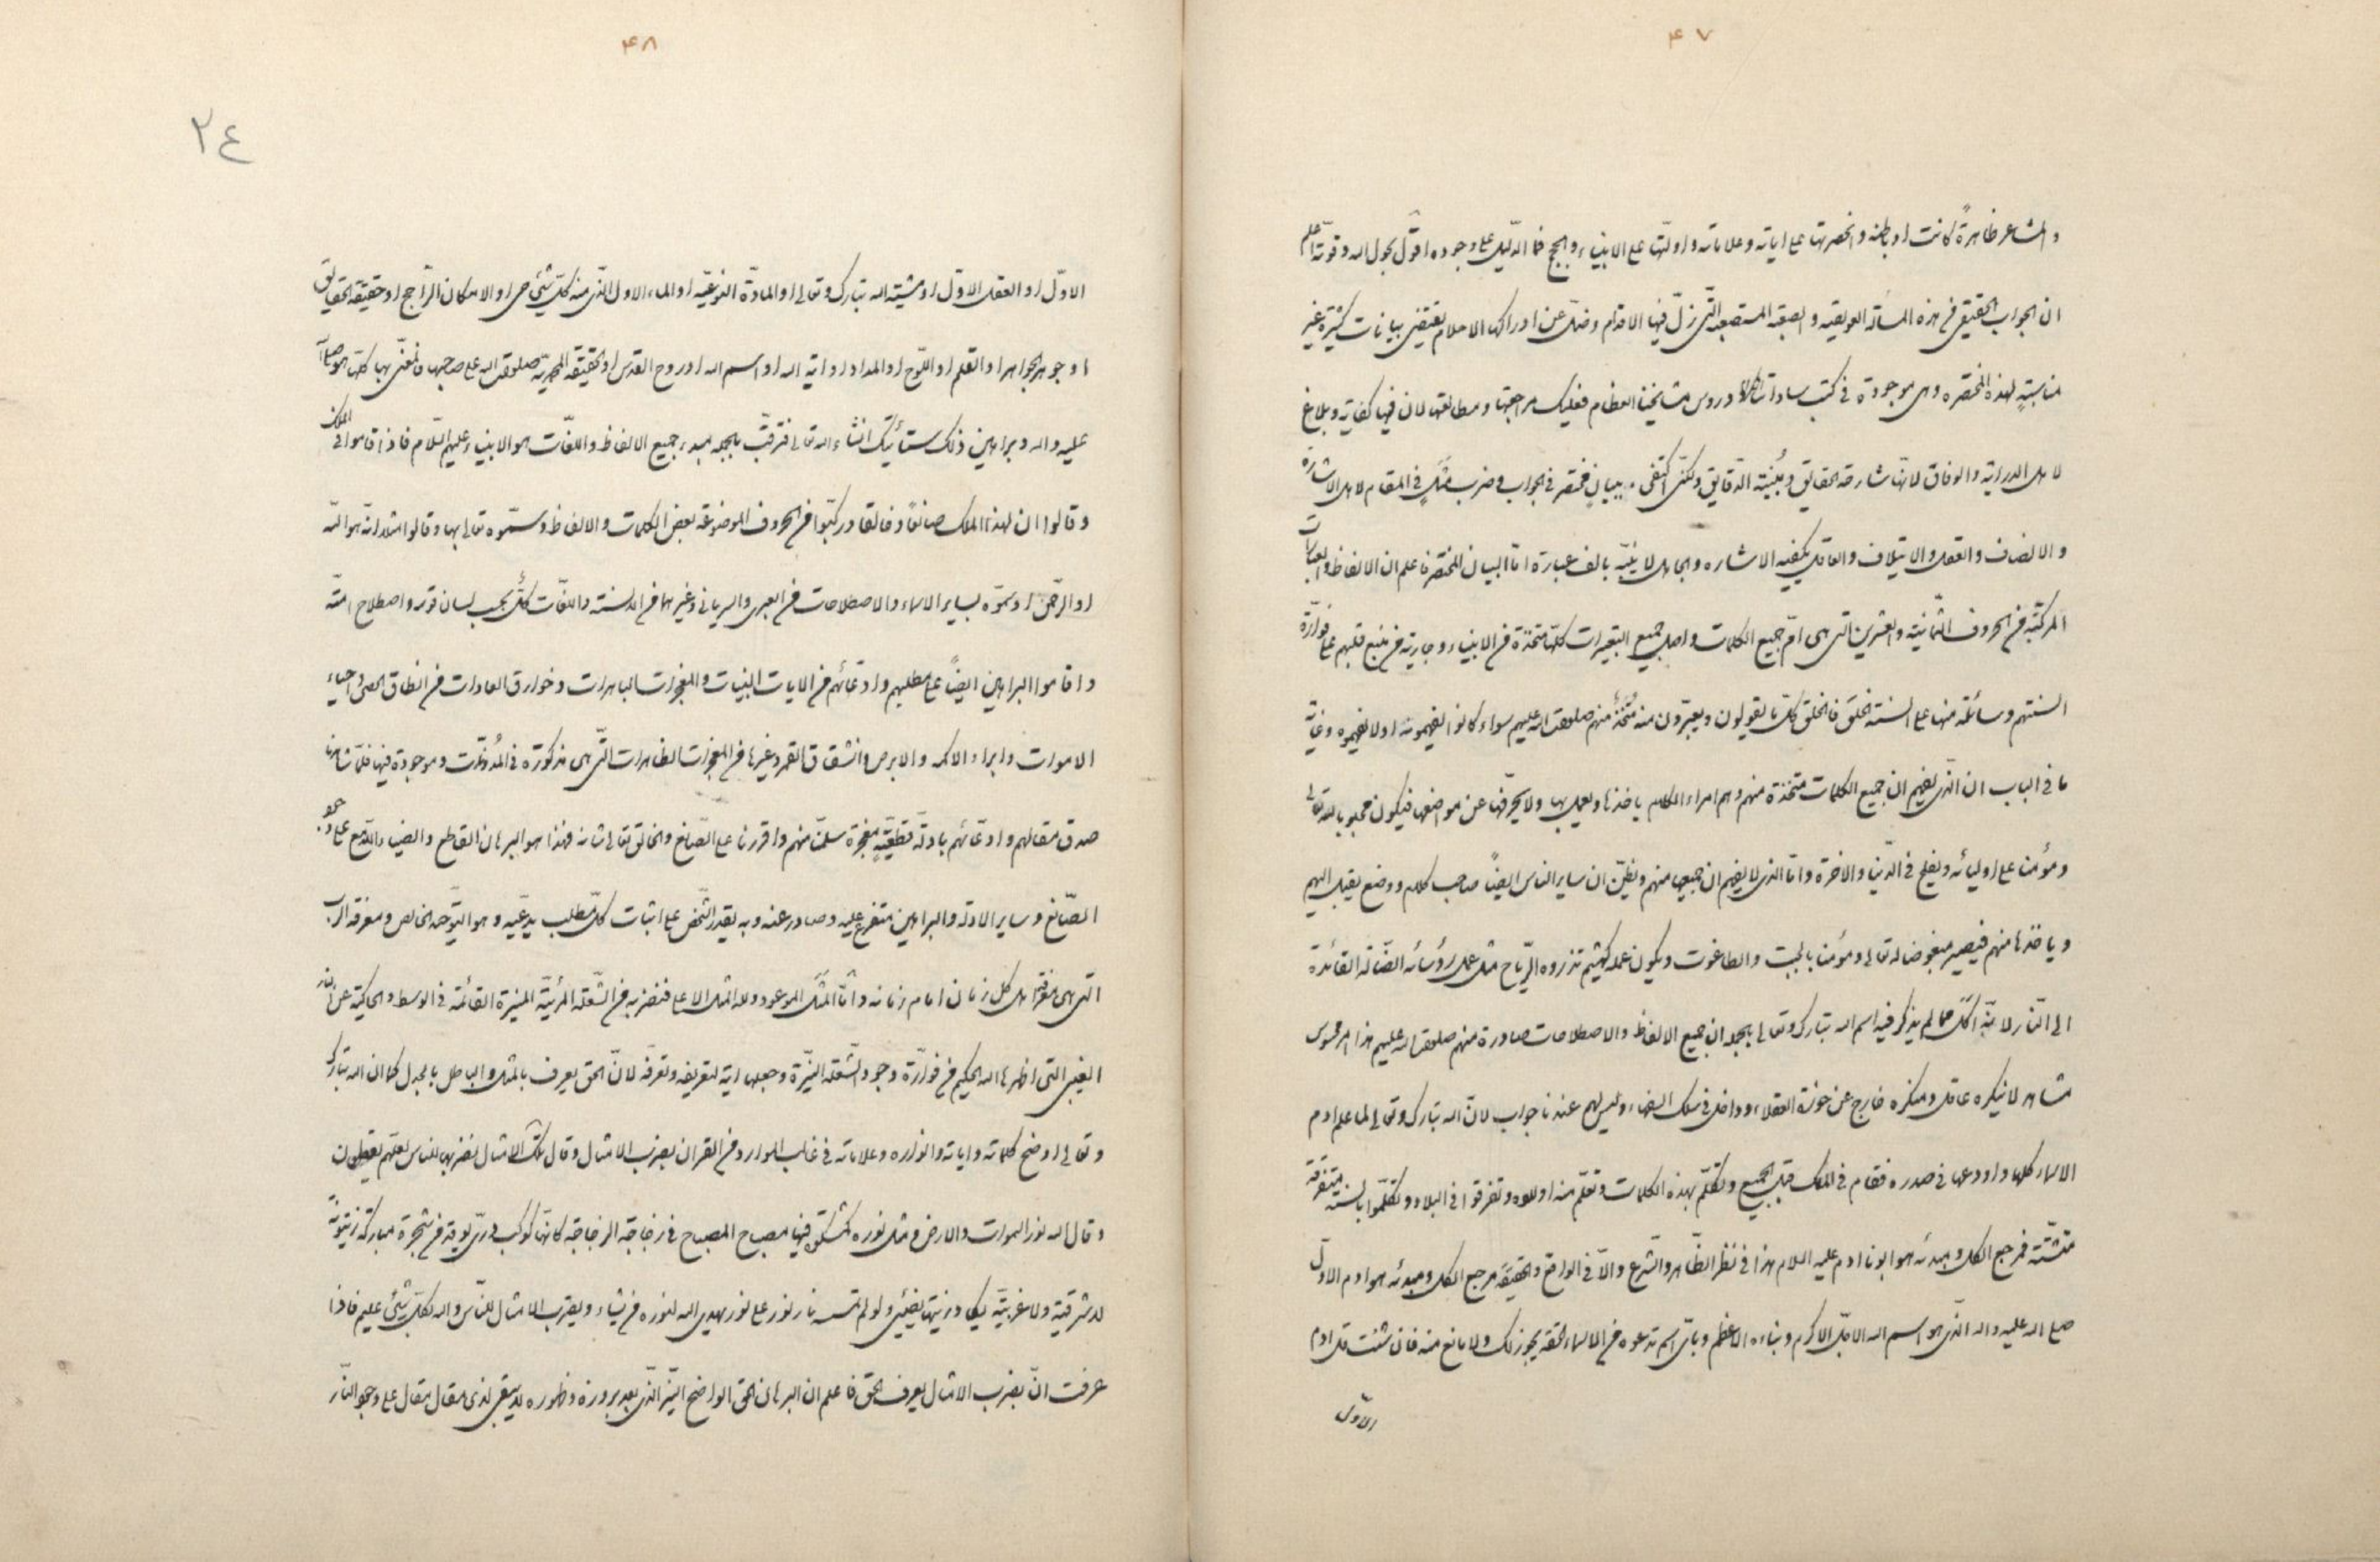 ۴۷
والمشاعر ظاهرةً كانت او باطنة وانحصرتها على اياته وعلاماته واولتها على الانبياء والحجج فما الدليل على وجوده اقول بحول الله وقوته اعلم
ان الجواب الحقيقى فى هذه المسئلة العويصه والصعبة المستصعبه التى زلّ فيها الاقدام وضلّ عن ادراكها الاحلام يقتضى بيانات كثيرة غير
مناسبةٍ لهذه المختصره وهى موجودة فى كتب ساداتنا ودروس مشايخنا العظام فعليك مراجعتها ومطالعتها لان فيها كفاية وبلاغ
لاهل الدراية والوفاق لانها شارحة الحقايق ومُبيّنة الدقايق ولكن اكتفى ببيانٍ مختصر فى الجواب وضرب مثلٍ فى المقام لاهل الاشارة
والانصاف والعقل والايتلاف والعاقل يكفيه الاشاره والجاهل لا ينبّه بالف عبارة امّا البيان المختصر فاعلم ان الالفاظ والعبارات
المركبّة من الحروف الثمانية والعشرين التى هى امّ جميع الكلمات واصل جميع التعبيرات كلّها متخذة من الانبياء وجارية من منبع قلبهم على فوّارة
السنتهم وسائلة منها على السنة الخلق فالخلق كلّ ما يقولون ويعبّرون منه متخذ منهم صلوات الله عليهم سواء كانوا يفهمونه اولا يفهموه وغاية
ما فى الباب ان الذى يفهم ان جميع الكلمات متخذة منهم وهم امراء الكلام ياخذها ويعمل بها ولا يحرّفها عن موضعها فيكون محبوبا لله تعالى
ومؤمنا على اوليائه ويفلح فى الدين والاخرة وامّا الذى لا يفهم ان جميعها منهم ويظنّ ان ساير الناس ايضاً صاحب كلام ووضع يقبل اليهم
وياخذها منهم فيصير مبغوضا لله تعالى ومؤمنا بالجبت والطاغوت ويكون عمله كهشيم تذروه الرّياح مثل عمل رؤسائه الضّالة القائدة
الى النّار لانّه اكل ممّا لم يذكر فيه اسم الله تبارك وتعالى بالجملة ان جميع الالفاظ والاصطلاحات صادرة منهم صلوات الله عليهم هذا امر محسوس
مشاهد لا ينكره عاقل ومنكره خارج عن حوزة العقلاء وداخل فى سلك السفهاء وليس لهم عندنا جواب لانّ الله تبارك وتعالى لما علم ادم
الاسماء كلها واودعها فى صدره فقام فى الملك قبل الجميع وتكلّم بهذه الكلمات وتعلّم منه اولاده وتفرقوا فى البلاد وتكلّموا بالسنة متفرقة
متشتّتة فمرجع الكل ومبدئه هو ابونا ادم عليه السلام هذا فى نظر الظّاهر والشرع والّا فى الواقع والحقيقة مرجع الكل ومبدئه هو ادم الاوّل
صلى الله عليه واله الّذى هو اسم الله الاجلّ الاكرم وبناءه الاعظم وبائّ اسم تدعوه من الاسماء الحقة يجوز ذلك ولا مانع منه فان شئت قل ادم
الاوّل
۴۸
٢٤
الاوّل او العقل الاوّل او مشية الله تبارك وتعالى او المادّة النوعيّة او الماء الاول الّذى منه كلّ شئ حى او الامكان الرّاجح او حقيقة الحقايق
او جوهر الجواهر او القلم او اللّوح او المداد او اية الله او اسم الله او روح القدس او الحقيقة المحمدية صلوات الله على صاحبها فالمعنّى بها كلّها هو صلى الله
عليه واله وبراهين ذلك ستأتيك انشاء الله تعالى فترقّب بالجمله مبدء جميع الالفاظ واللغات هو الانبياء عليهم السّلام فاذا قاموا فى الملك
وقالوا ان لهذا الملك صانعاً وخالقا وركبّوا من الحروف الموضوعة بعض الكلمات والالفاظ وسمّوه تعالى بها وقالوا مثلا انّه هو الله
او الرحمن او سمّوه بساير الاسماء والاصطلاحات من العبرى والسريانى وغيرهما من الالسنة واللغات كلٌ بحسب لسان قومه واصطلاح امّته
واقاموا البراهين ايضاً على مطلبهم وادّعائهم من الايات البيّنات والمعجزات الباهرات وخوارق العادات من انطاق الحصى واحياء
الاموات وابراء الاكمه والابرص وانشقاق القمر وغيرها من المعجزات الظاهرات الّتى هى مذكورة فى المدوّنات وموجودة فيها فلمّا شاهدنا
صدق مقالهم وادّعائهم بادلّة قطعيّةٍ معجزة سلّمنا منهم واقررنا على الصّانع والخالق تعالى شانه فهذا هو البرهان القاطع والضياء اللّامع على وجود
الصّانع وساير الادلّة والبراهين متفرع عليه وصادر عنه وبه يقدر الشّخص على اثبات كلّ مطلب يدّعيه وهو التوحيد الخالص ومعرفة الرب
التى هى معرفة اهل كل زمان امام زمانه وامّا المثل الموعود ولله المثل الاعلى فنضربه من الشّعلة المرئيّة المنيرة القائمة فى الوسط والحاكية عن النار
الغيبى التى اظهرها الله الحكيم من فوّارة وجود الشّعلة النيّرة وجعلها اية لتعريفه وتعرّفه لانّ الحق يعرف بالمثل والباطل بالجدل كما ان الله تبارك
وتعالى اوضح كلماته واياته وانواره وعلاماته فى غالب الموارد من القران بضرب الامثال وقال تلك الامثال نضربها للناس لعلّهم يعقلون
وقال الله نور السموات والارض مثل نوره كمشكوة فيها مصباح المصباح فى زجاجة الزجاجة كانّها كوكب درّى يوقد من شجرة مباركة زيتونة
لا شرقية ولا غربيّة يكاد زيتها يضيئى ولو لم تمسسه نار نور على نور يهدى الله لنوره من يشاء ويضرب الامثال للنّاس والله بكلّ شيئ عليم فاذا
عرفت انّ بضرب الامثال يعرف الحق فاعلم ان البرهان الحق الواضح النيّر الّذى بعد بروزه وظهوره لا يبقى لذى مقال مقال على وجود النّار